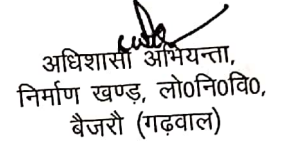 अधिशासी अभियन्ता,
निर्माण खण्ड़, लो०नि०वि०,
बैजरौ (गढ़वाल)